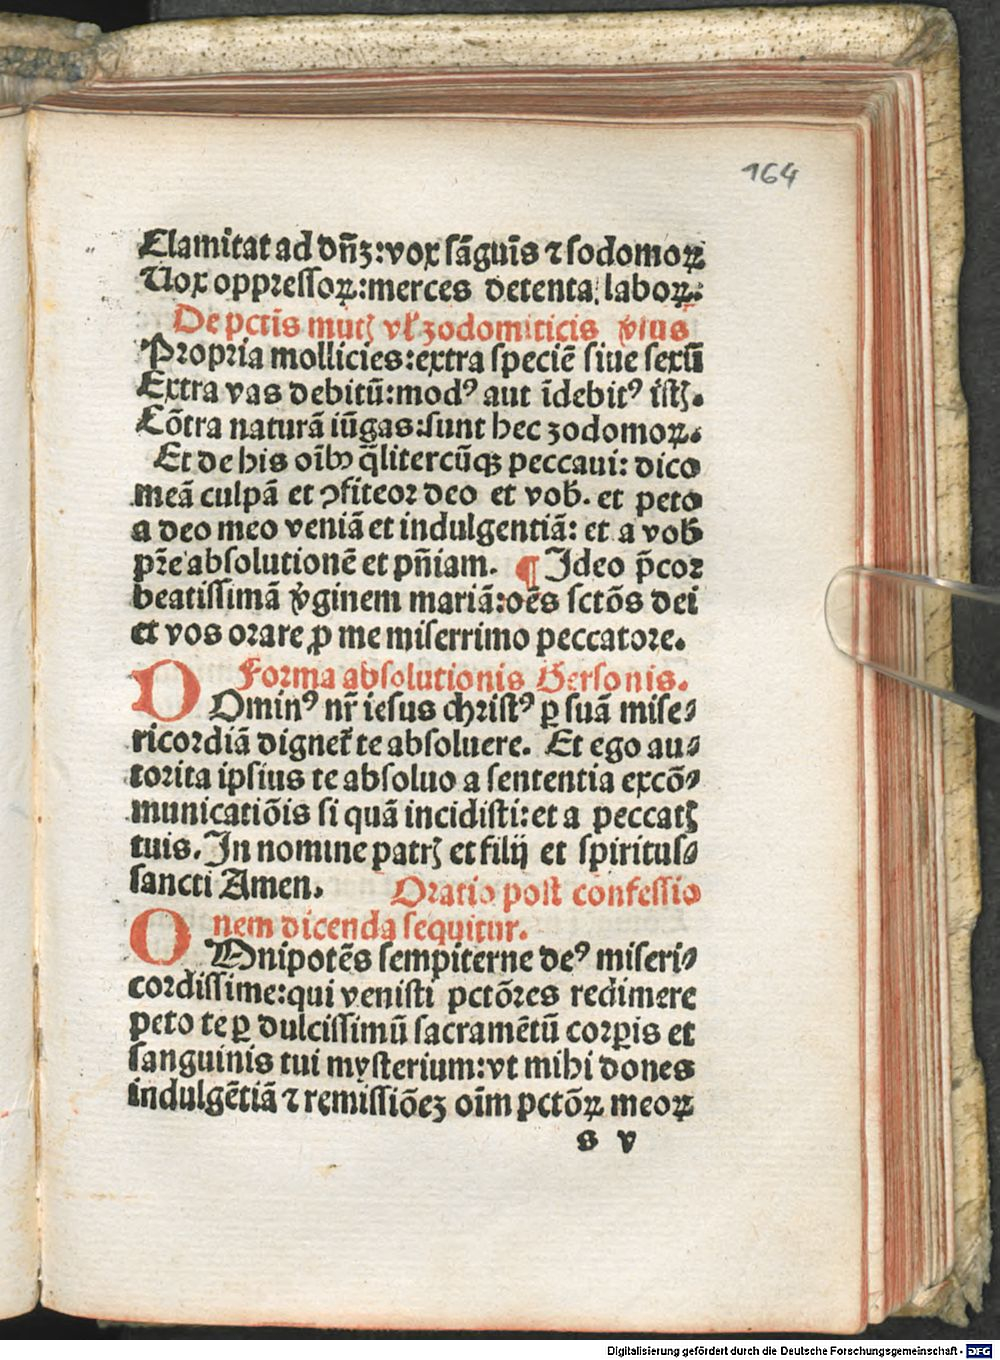 164
Clamitat ad dn̄ꝫ: vox sāguīs ⁊ sodomoꝝ
Uox oppressoꝝ: merces detenta laboꝝ.
De pctīs mutꝭ vl̓ zodomiticis v̓sus
Propria mollicies: extra speciē siue sexū
Extra vas debitū: modꝰ aut īdebitꝰ istꝭ.
Cōtra naturā iūgas: sunt hec zodomoꝝ.
Et de his oībꝰ q̄litercūqꝫ peccaui: dico
meā culpā et ꝯfiteor deo et vob̓. et peto
a deo meo veniā et indulgentiā: et a vob̓
pr̄e absolutionē et pn̄iam. ¶ Ideo p̄cor
beatissimā v̓ginem mariā: oēs sctōs dei
et vos orare ꝓ me miserrimo peccatore.
Forma absolutionis Gersonis.
DOminꝰ nr̄ iesus christꝰ ꝑ suā mise⸗
ricordiā dignet̓ te absoluere. Et ego au⸗
torita ipsius te absoluo a sententia excō⸗
municatiōis si quā incidisti: et a peccatꝭ
tuis. In nomine patrꝭ et filij et spiritus⸗
sancti Amen. Oratio post confessio
nem dicenda sequitur.
OMnipotēs sempiterne deꝰ miseri⸗
cordissime: qui venisti pctōres redimere
peto te ꝑ dulcissimū sacramētū corꝑis et
sanguinis tui mysterium: vt mihi dones
indulgētiā ⁊ remissiōeꝫ oīm pctōꝝ meoꝝ
s v
Digitalisierung gefördert durch die Deutsche Forschungsgemeinschaft - DFG